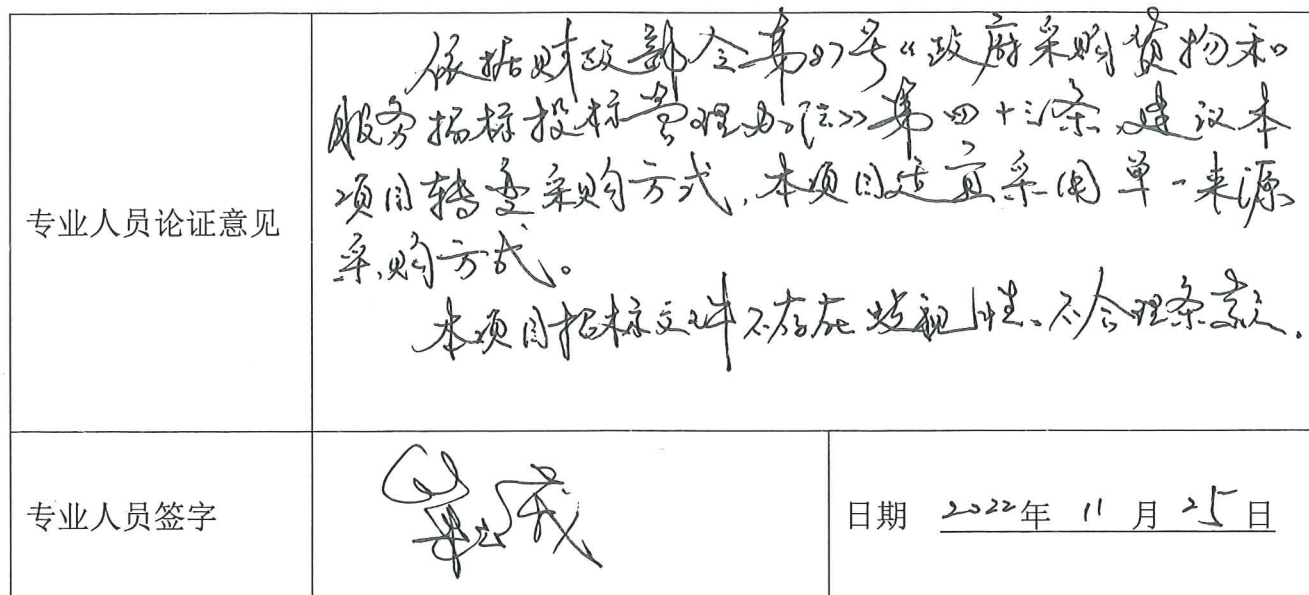 专业人员论证意见
依据财政部令第87号《政府采购货物和
服务招标投标管理办法》第四十三条,建议本
项目转变采购方式,本项目适宜采用单一来源
采购方式。
本项目招标文件不存在歧视性、不合理条款.
专业人员签字
日期 2022年 11 月 25 日